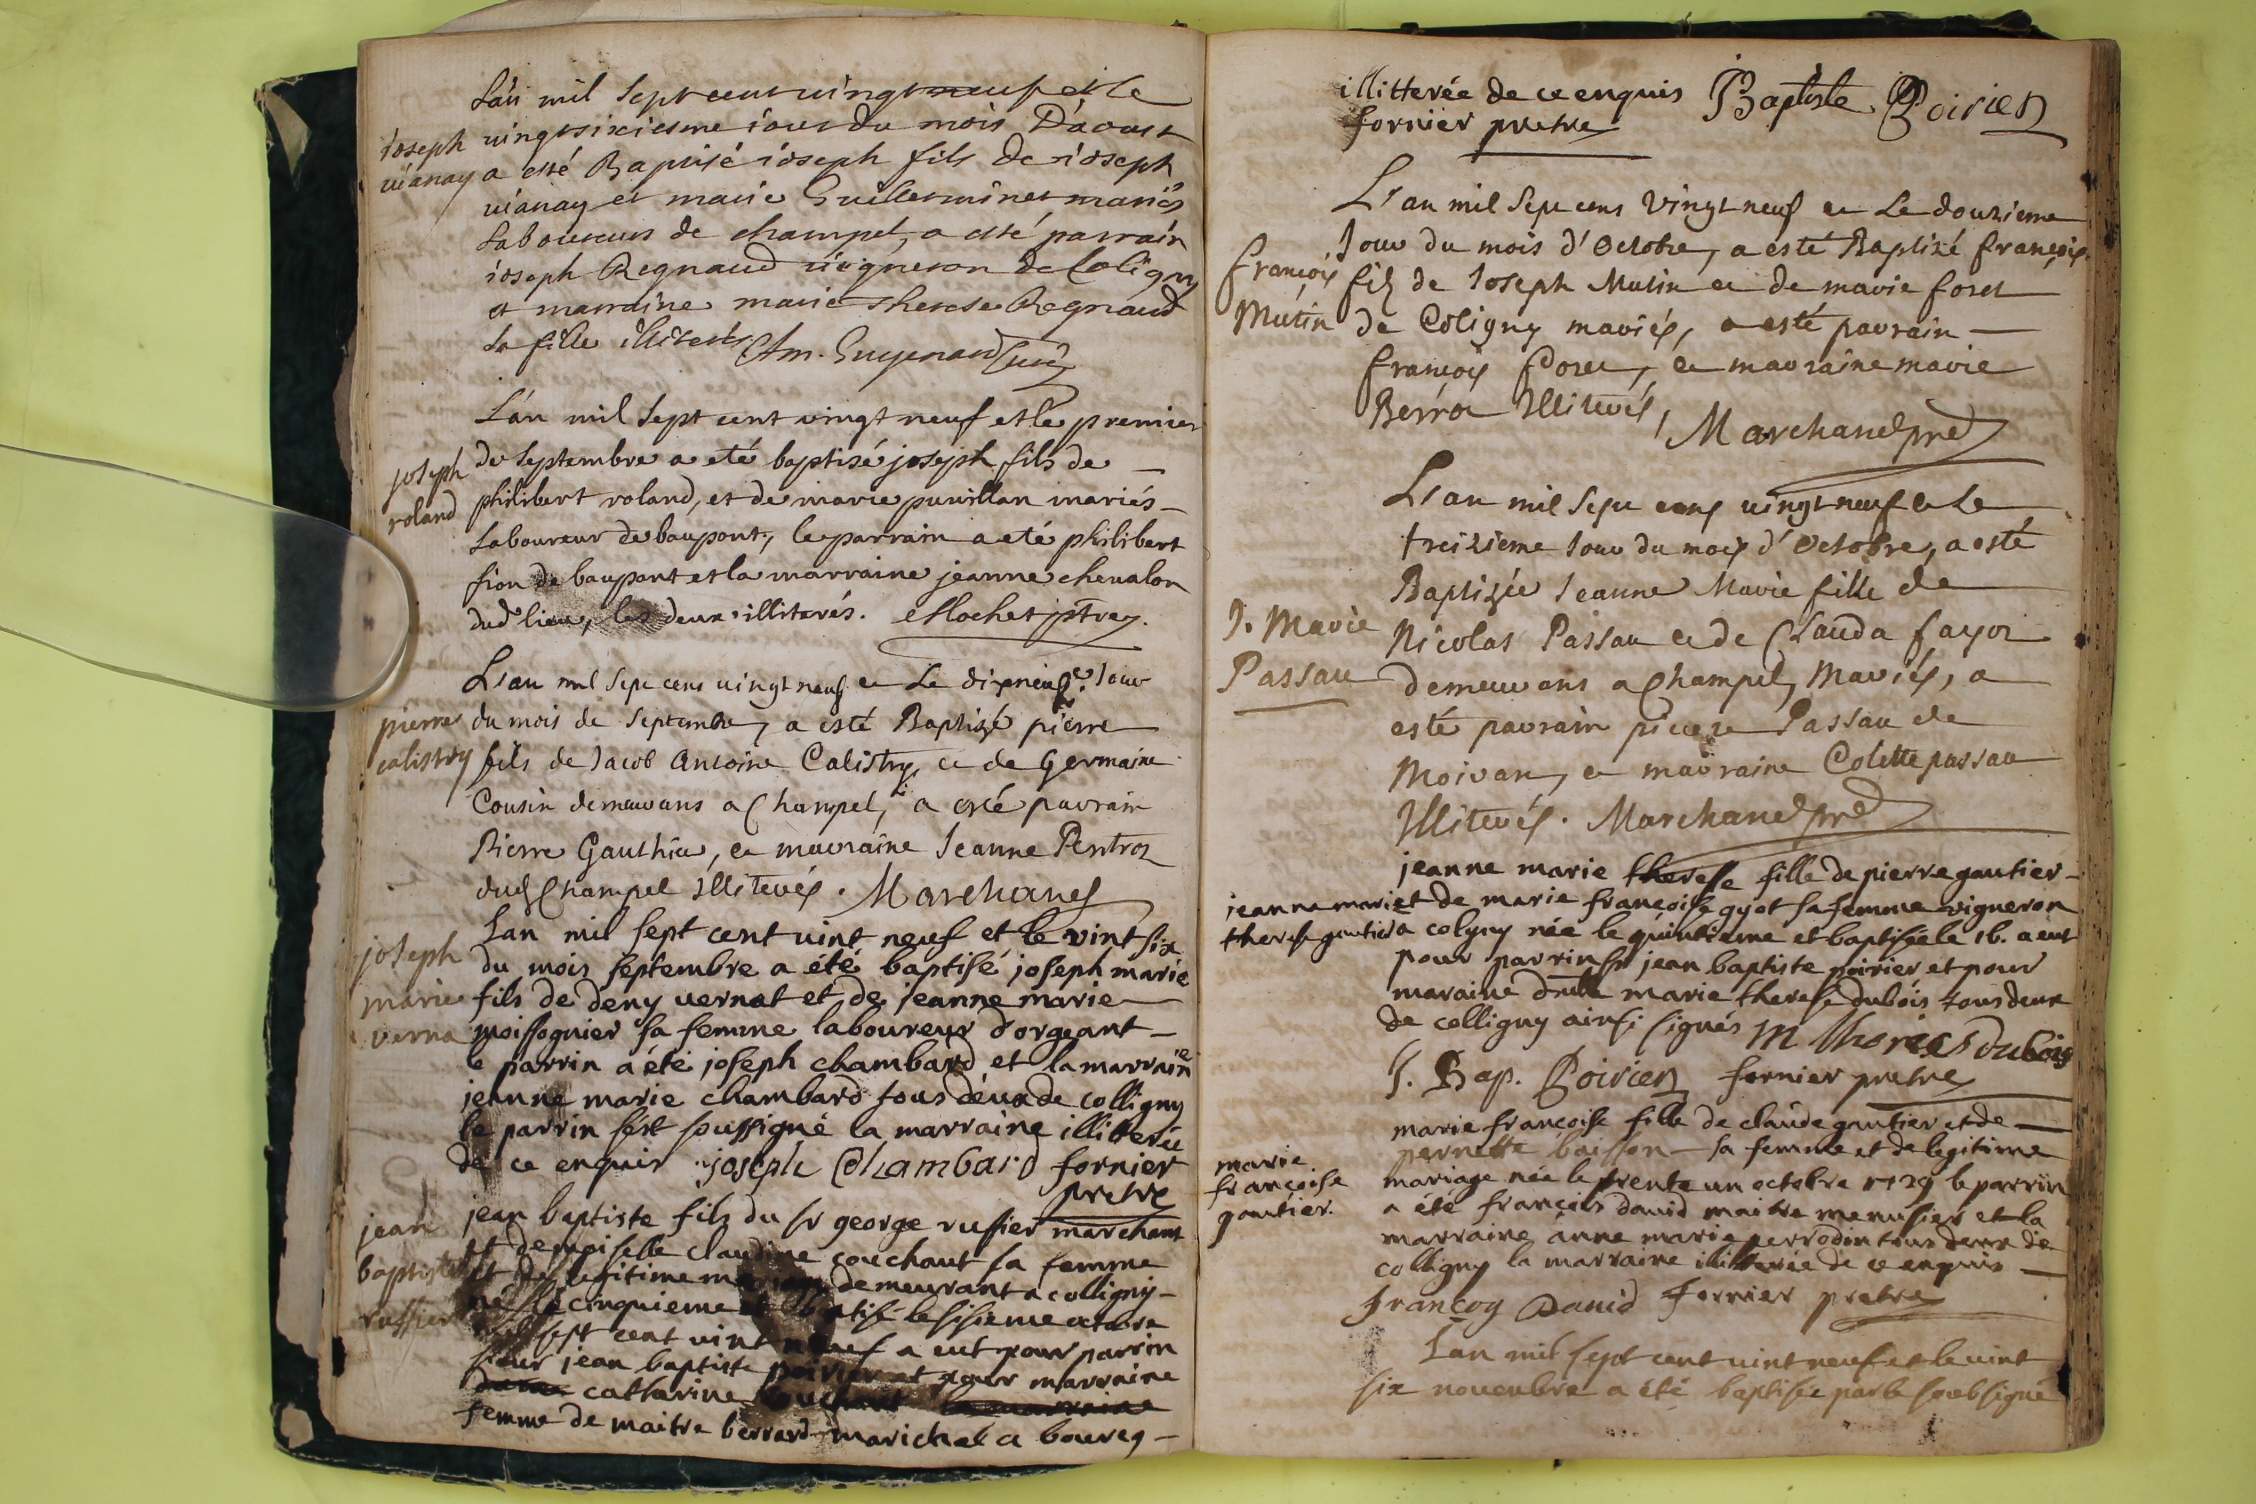 L'an mil sept cent vingt neuf et le
ioseph
vianay
vingt sixiesme iour du mois D'aoust
a esté Baptisé ioseph fils de ioseph
vianay et marie Guillerminet mariés
Laboureurs de champel, a esté parrain
ioseph Regnaud vigneron de Coligny
et marraine marie therese Regnaud
sa fille illiterés
L'an mil sept cent vingt neuf et le premier
joseph
roland
de septembre a eté baptisé joseph fils de
philibert roland, et de marie mariés
Laboureur de baupont, le parrain a eté philibert
fion de baupont et la marraine jeanne chevalon
dud lieu, les deux illiterés.
L'an mil sept cens vingt neuf et Le dixneuf.e Jour
pierre
calistry
du mois de septembre, a esté Baptizé pierre
fils de Jacob Antoine Calistry, et de Germaine
Cousin demeurans a Champel, a esté parrain
Pierre Gauthier, et marraine Jeanne
dud Champel Illiterés. Marchand
Lan mil sept cent vint neuf et le vint six
joseph
marie
verna
du mois septembre a été baptisé joseph marie
fils de deny vernat et de jeanne marie
moissognier sa femme laboureur d'orgeant
le parrin a été joseph chambard et la marraine
jeanne marie chambard tous deux de colligny
le parrin s'ést soussigné la marraine illitterée
de ce enquis joseph Chambard fornier
pretre
jean
baptiste
russier
jean baptiste fils du sr george russier marchant
et demoiselle claudine couchant sa femme
et de legitime mariage demeurant a colligny
né le cinquieme et batisé le sisieme octobre
mil sept cent vint neuf a eut pour parrin
sieur jean baptiste poirier et pour marraine
catharine
femme de maitre berrard marichal a boureg
illitterée de ce enquis JBaptiste Poirier
fornier pretre
L'an mil Sept cens Vingt neuf et Le douzieme
françois
Mutin
Jour du mois d'Octobre, a esté Baptizé françois
filz de Joseph Mutin et de marie foret
de Coligny mariés, a esté parrain
françois foret, et marraine marie
Illiterés, Marchand pre
L'an mil Sept cens vingt neuf et Le
treizieme Jour du mois d'Octobre, a esté
J. Marie
Passau
Baptizée Jeanne Marie fille de
Nicolas Passau et de Clauda
demeurans a Champel, Mariés, a
esté parrain pierre Passau de
et marraine Colette passau
Illiterés. Marchand pre
jeanna marie
therese gautier
jeanne marie therese fille de pierre gautier
et de marie françoise gyot sa femme vigneron
a colyny née le quintieme et baptisée le 16. a eut
pour parrin sr jean baptiste poirier et pour
maraine dmlle marie therese dubois tous deux
de colligny ainsi signés M theress dubois
J. Bap. Poirier fornier pretre
marie
françoise
gautier.
marie françoise fille de claude gautier et de
pernette boisson sa femme et de legitime
mariage née le trente un octobre 1729 le parrin
a été françois david maitre menusier et la
marraine anne marie perrodin tous deux de
colligny la marraine illitterée de ce enquis
francoy David fornier pretre
Lan mil sept cent vint neuf et le vint
six novenbre a été baptisée par le soubsigné